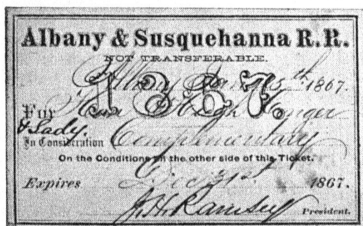 Albany & Susquehanna R. R.
NOT TRANSFERABLE.
Albany 5th 1867.
1867.
For
& Lady.
In Consideration Complimentary
On the Conditions on the other side of this Ticket.
Expires Dec 31st 1867.
J. H. Ramsey President.